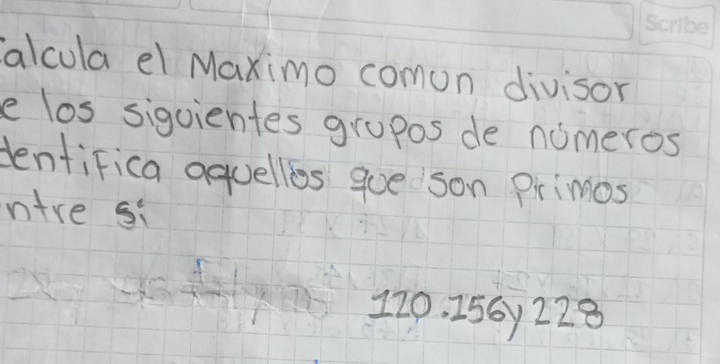 Scribe
calcula el Maximo comun divisor
e los siguientes grupos de números
dentifica aquellos que son primos
ntre si
120.156y 228